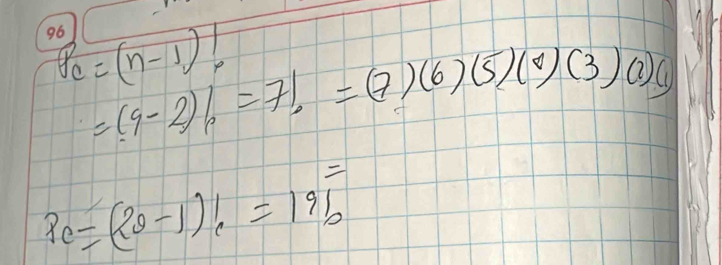 96
Pc = (n-1)!
= (9-2)! = 7! = (7)(6)(5)(4)(3)(2)(1)
=
Pc = (20-1)! = 19!